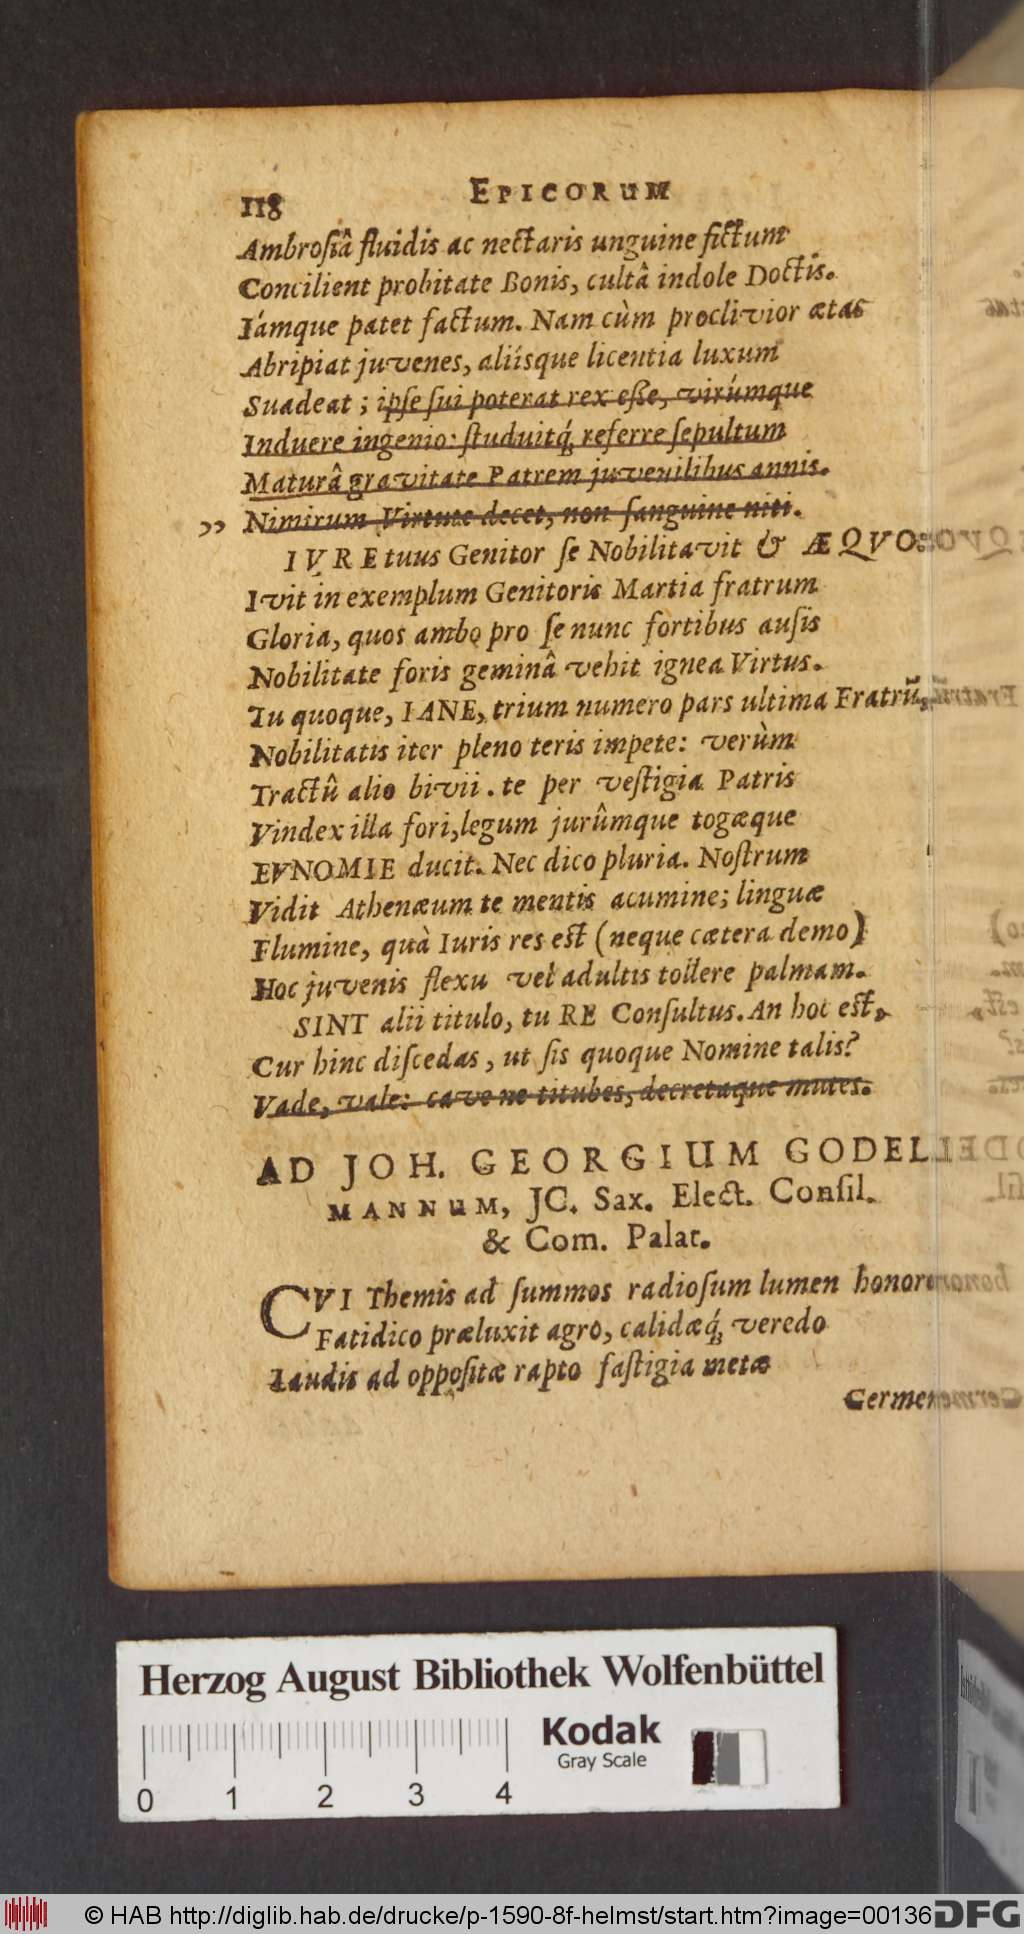 118 EPICORUM
Ambrosiâ fluidis ac nectaris unguine fictum
Concilient probitate Bonis, cultâ indole Doctis.
Iámque patet factum. Nam cùm proclivior ætas
Abripiat juvenes, aliísque licentia luxum
Suadeat ; ipſe ſui poterat rex eſſe, virúmque
Induere ingenio: ſtuduitq́; referre ſepultum
Maturâ gravitate Patrem juvenilibus annis.
,, Nimirum Virtute decet, non ſanguine niti.
IVRE tuus Genitor ſe Nobilitavit & ÆQVO:
Ivit in exemplum Genitoris Martia fratrum
Gloria, quos ambo pro ſe nunc fortibus auſis
Nobilitate foris geminâ vehit ignea Virtus.
Tu quoque, IANE, trium numero pars ultima Fratrũ,
Nobilitatis iter pleno teris impete: verùm
Tractû alio bivii. te per veſtigia Patris
Vindex illa fori, legum jurûmque togæque
EVNOMIE ducit. Nec dico pluria. Noſtrum
Vidit Athenæum te mentis acumine; linguæ
Flumine, quà Iuris res eſt (neque cætera demo)
Hoc juvenis flexu vel adultis tollere palmam.
SINT alii titulo, tu RE Conſultus. An hoc eſt,
Cur hinc diſcedas, ut ſis quoque Nomine talis?
Vade, vale: cave ne titubes, decretaque mutes.
AD JOH. GEORGIUM GODEL
MANNUM, JC. Sax. Elect. Conſil.
& Com. Palat.
CVI Themis ad ſummos radioſum lumen honore
Fatidico præluxit agro, calidæq́; veredo
Laudis ad oppoſitæ rapto faſtigia metæ
Germen
Herzog August Bibliothek Wolfenbüttel
Kodak
Gray Scale
0 1 2 3 4
© HAB http://diglib.hab.de/drucke/p-1590-8f-helmst/start.htm?image=00136 DFG